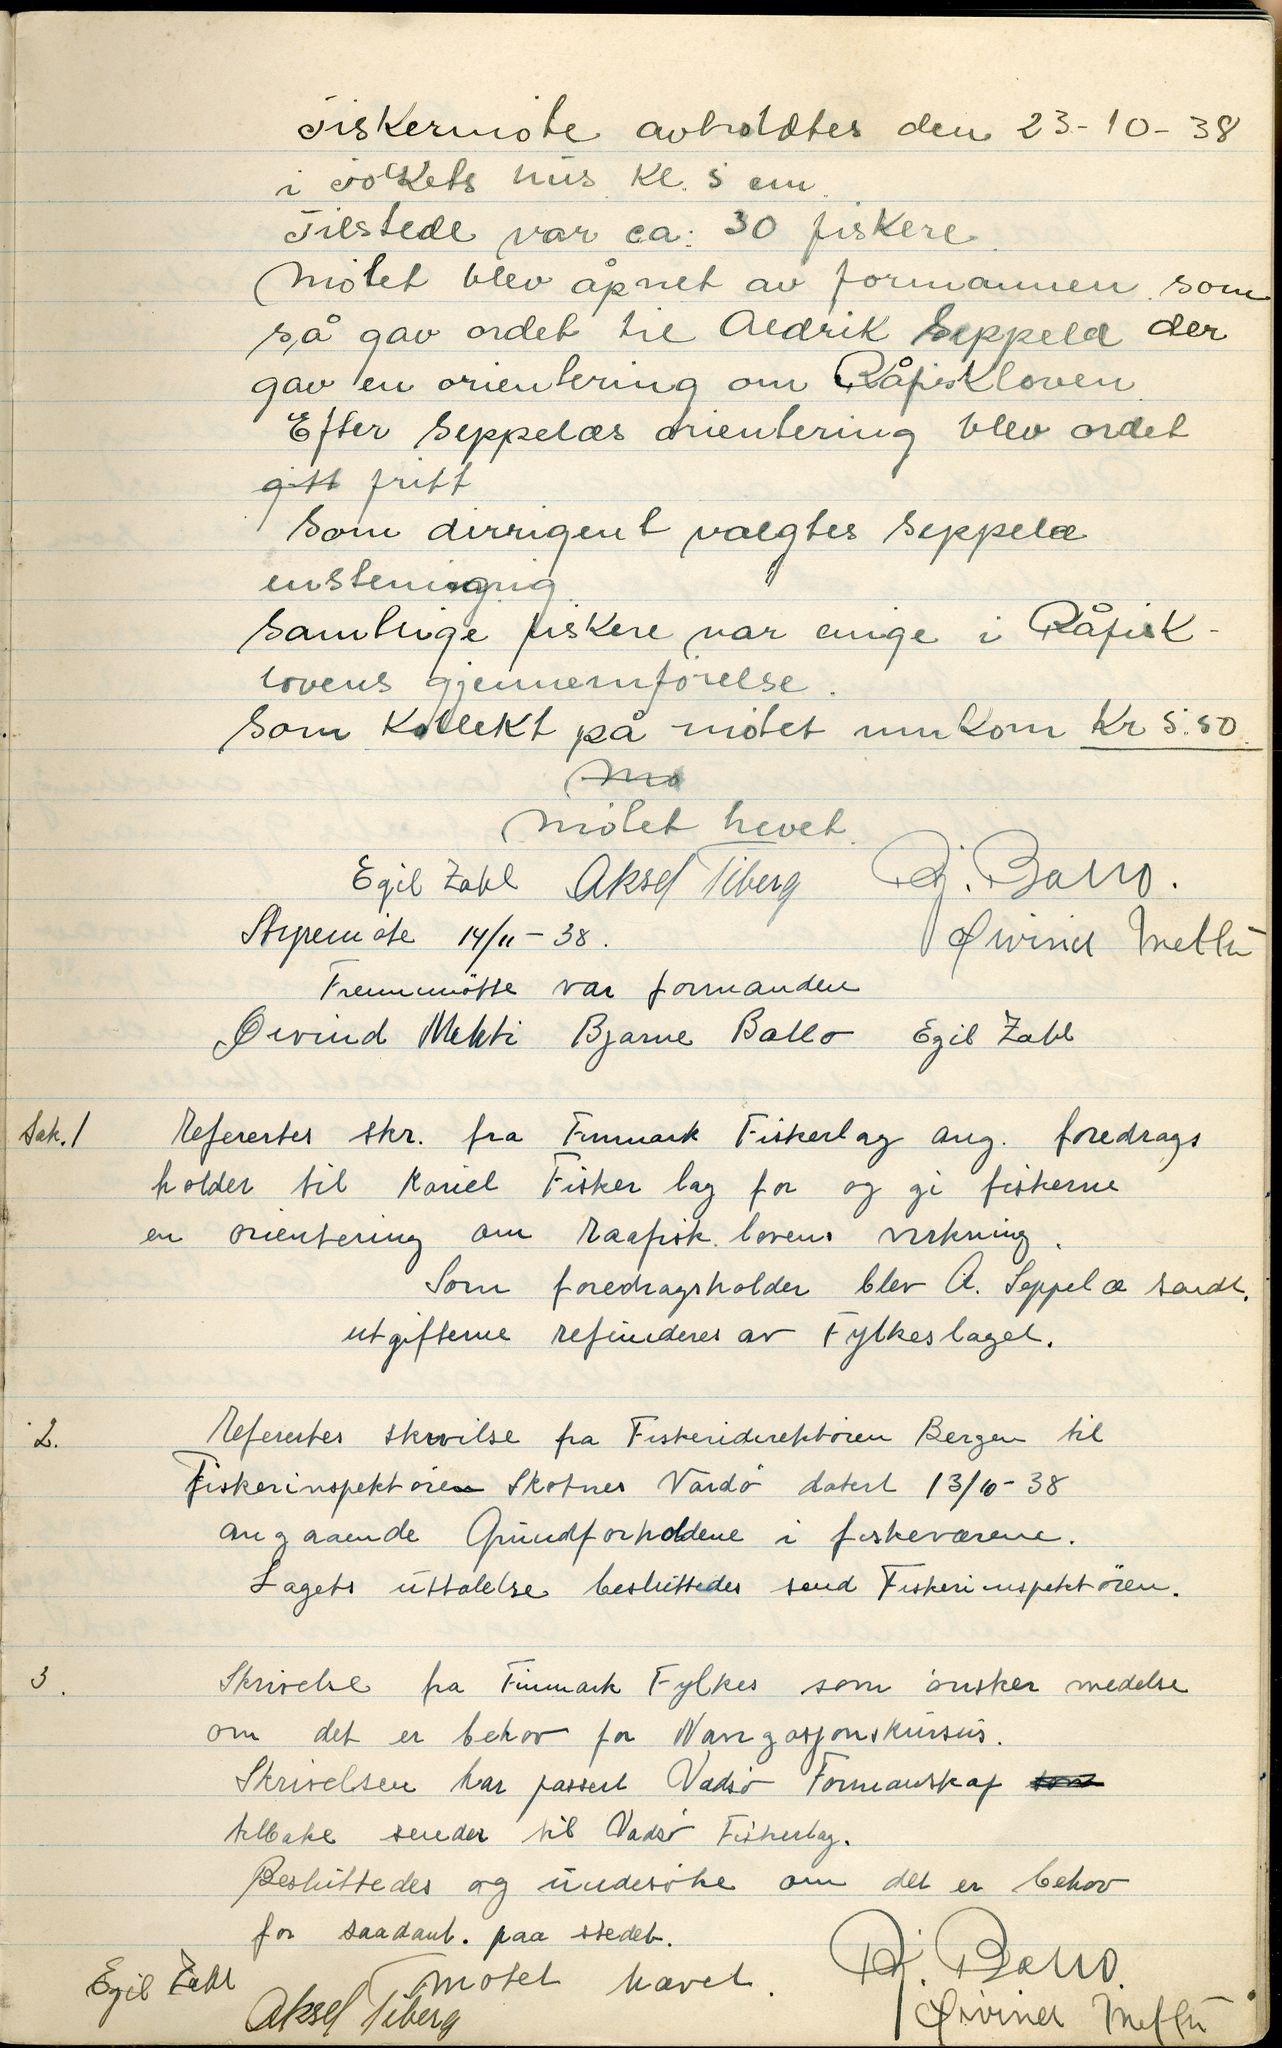 Fiskermöte avholdtes den 23-10-38
i Folkets hus kl. 5 em.
Tilstede var ca: 30 fiskere
Mötet blev åpnet av formannen som
så gav ordet til Aldrik Seppelæ der
gav en orientering om Råfiskloven
Efter Seppelæs orientering blev ordet
gitt fritt
Som dirrigent valgtes Seppelæ
enstemmig
Samtlige fiskere var enige i Råfisk-
lovens gjennemförelse.
Som Kollekt på mötet innkom Kr 5.50
Mö
Mötet hevet.
Egil Zahl Aksel Tiberg Bj. Ballo.
Styremöte 14/11-38. Øivind Mektí
Fremmötte var formanden
Øivind Mekti Bjarne Ballo Egil Zahl
Sak. 1 Referertes skr. fra Finmark Fiskerlag ang. foredrags
holder til Kariel Fisker lag for og gi fiskerne
en orientering om Raafisk lovens virkning.
Som foredragsholder blev A. Seppelæ sendt.
utgifterne refunderes av Fylkeslaget.
2. Referertes skrivilse fra Fiskeridirektören Bergen til
Fiskerinspektören Skotnes Vardö datert 13/10-38
angaaende Grundforholdene i fiskeværene.
Lagets uttalelse besluttedes send Fiskerinspektören.
3. Skrivelse fra Finmark Fylkes som önsker medelse
om det er behov for Navigasjonskursus.
Skrivelsen har passert Vadsö Formanskap som
tilbake sender til Vadsö Fiskerlag.
Besluttedes og undersöke om det er behov
for saadant. paa stedet.
Mötet hævet. Bj. Ballo.
Egil Zahl Aksel Tiberg Øivind Mektí